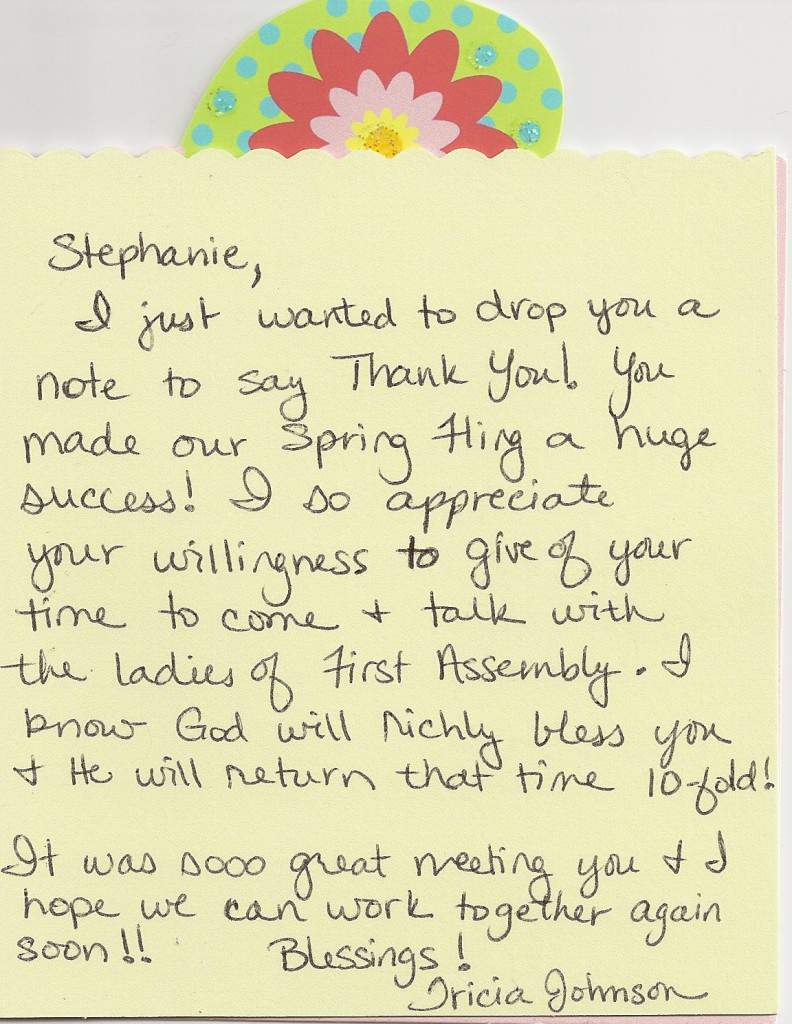 Stephanie,
I just wanted to drop you a
note to say Thank You! You
made our Spring Fling a huge
success! I so appreciate
your willingness to give of your
time to come + talk with
the ladies of First Assembly. I
know God will richly bless you
+ He will return that time 10-fold!
It was sooo great meeting you + I
hope we can work together again
soon!! Blessings!
Tricia Johnson